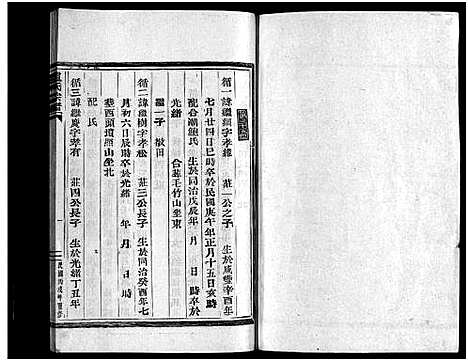 循一諱繼 字孝 莊一公之子 生於咸豐辛酉年
七月廿四日巳時卒於民國庚午年正月十五日亥時
配谷湖鮑氏 生於同治戊辰年 月 日 時卒於
光緒 合葬毛竹山坐東
繼一子 
循二諱繼樹字孝松 莊三公長子 生於同治癸酉年七
月初六日辰時卒於光緒 年 月 日 時
葬西頭墳頭山坐北
配 氏
循三諱繼慶字孝有 莊四公長子 生於光緒丁丑年